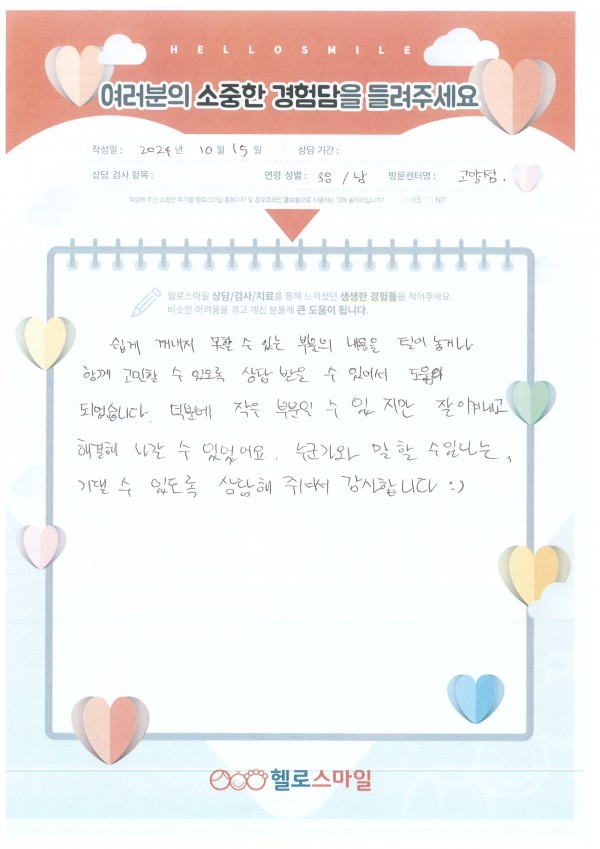 HELLOSMILE
여러분의 소중한 경험담을 들려주세요
작성일 : 2024 년 10 월 15 일 상담 기간 :
상담 검사 항목 : 연령 성별 : / 남 방문센터명 : 고양점.
작성해 주신 소중한 후기를 헬로스마일 홈페이지 및 온오프라인 홍보물으로 사용하는 것에 동의하십니까? YES NO
헬로스마일 상담/검사/치료를 통해 느끼셨던 생생한 경험들을 적어주세요.
비슷한 어려움을 겪고 계신 분들께 큰 도움이 됩니다.
쉽게 꺼내지 못할 수 있는 부분의 내용을 털어 놓거나
함께 고민할 수 있도록 상담 받을 수 있어서 도움이
되었습니다. 덕분에 작은 부분일 수 있지만 잘 이겨내고
해결해 나갈 수 있었어요. 누군가와 말 할 수 있다는,
기댈 수 있도록 상담해 주셔서 감사합니다 :)
헬로스마일